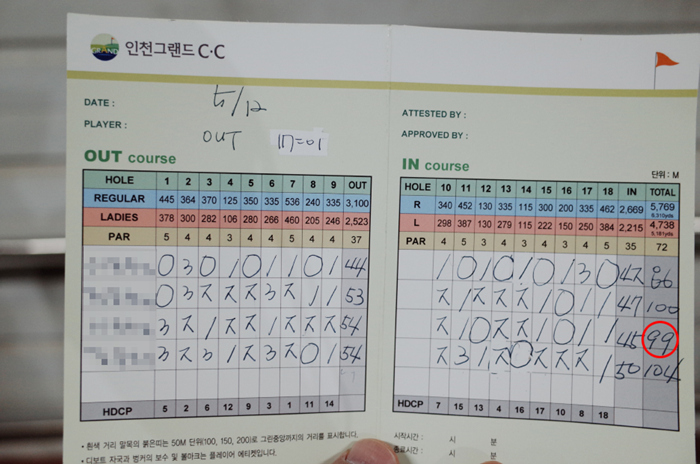 인천그랜드 C·C
DATE : 5/12
PLAYER :
OUT 117=01
OUT course
HOLE 1 2 3 4 5 6 7 8 9 OUT
REGULAR 445 364 370 125 350 335 536 240 335 3,100
LADIES 378 300 282 106 280 266 460 205 246 2,523
PAR 5 4 4 3 4 4 5 4 4 37
0 3 0 1 0 1 1 0 1 44
0 3 ㅈ ㅈ ㅈ 3 ㅈ 1 1 53
3 ㅈ 1 ㅈ ㅈ 1 ㅈ ㅈ ㅈ 54
3 ㅈ 3 1 ㅈ 3 ㅈ 0 1 54
HDCP 5 2 6 12 9 3 1 11 14
• 흰색 거리 말목의 붉은띠는 50M 단위(100, 150, 200)로 그린중앙까지의 거리를 표시합니다.
• 디보트 자국과 벙커의 보수 및 볼마크는 플레이어 에티켓입니다.
ATTESTED BY :
APPROVED BY :
IN course
단위 : M
HOLE 10 11 12 13 14 15 16 17 18 IN TOTAL
R 340 452 130 335 115 300 200 335 462 2,669 5,769
6,310yds
L 298 387 130 279 115 222 150 250 384 2,215 4,738
5,181yds
PAR 4 5 3 4 3 4 3 4 5 35 72
1 0 1 0 1 0 1 3 0 42 86
ㅈ 1 ㅈ ㅈ ㅈ 1 0 1 1 47 100
ㅈ 1 0 ㅈ ㅈ 1 0 1 1 45 99
ㅈ 3 1 ㅈ 0 ㅈ ㅈ ㅈ 1 50 104
HDCP 7 15 13 4 16 17 10 8 18
시작시간 : 시 분
종료시간 : 시 분